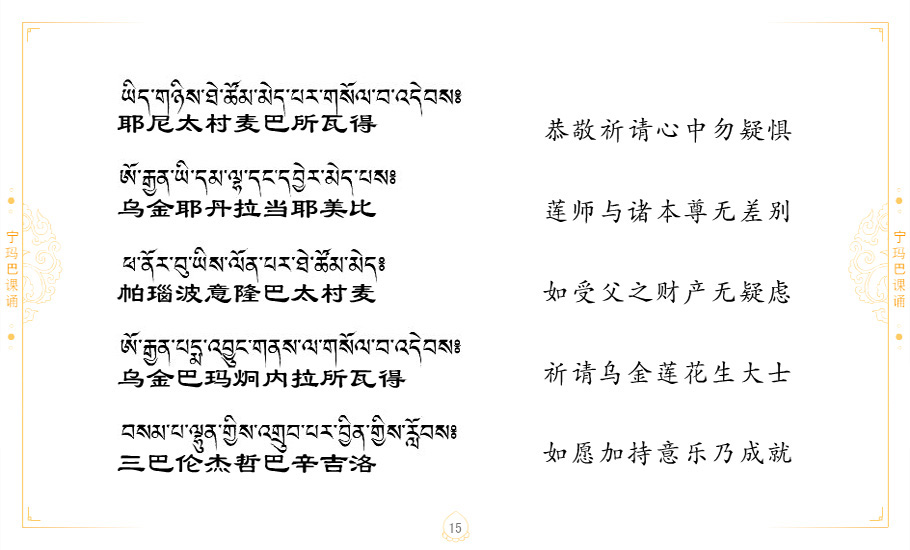 ཡིད་གཉིས་ཐེ་ཚོམ་མེད་པར་གསོལ་བ་འདེབས༔
耶尼太村麦巴所瓦得
恭敬祈请心中勿疑惧
ཨོ་རྒྱན་ཡི་དམ་ལྷ་དང་དབྱེར་མེད་པས༔
乌金耶丹拉当耶美比
莲师与诸本尊无差别
ཕ་ནོར་བུ་ཡིས་ལོན་པར་ཐེ་ཚོམ་མེད༔
帕瑙波意隆巴太村麦
如受父之财产无疑虑
ཨོ་རྒྱན་པདྨ་འབྱུང་གནས་ལ་གསོལ་བ་འདེབས༔
乌金巴玛炯内拉所瓦得
祈请乌金莲花生大士
བསམ་པ་ལྷུན་གྱིས་འགྲུབ་པར་བྱིན་གྱིས་རློབས༔
三巴伦杰哲巴辛吉洛
如愿加持意乐乃成就
宁玛巴课诵
宁玛巴课诵
15